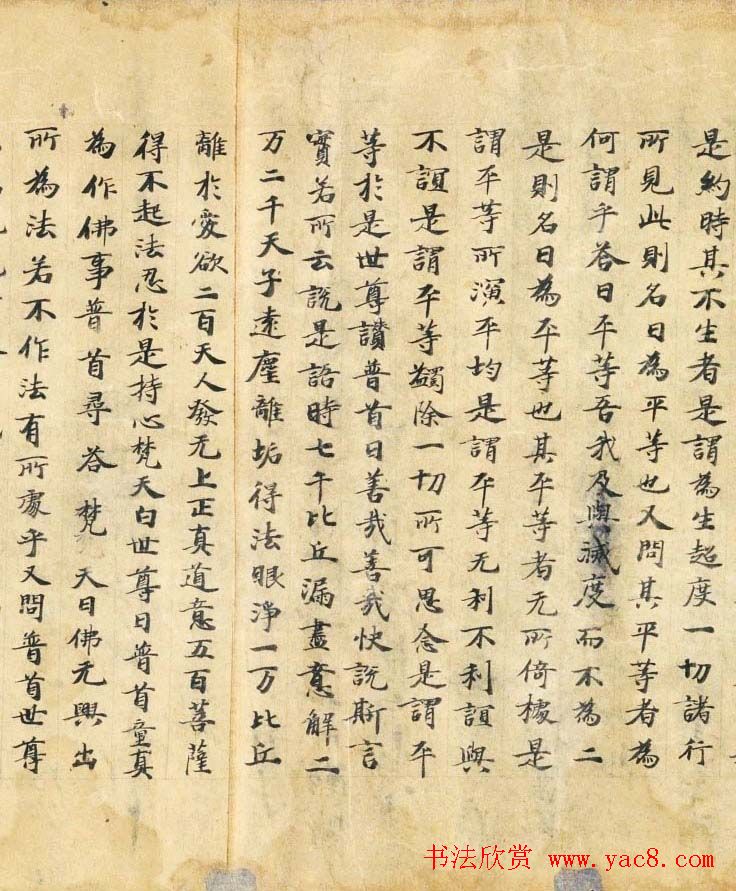 是約時其不生者是謂為生超度一切諸行
所見此則名曰為平等也又問其平等者為
何謂乎答曰平等吾我及與滅度而不為二
是則名曰為平等也其平等者无所倚據是
謂平等所演平均是謂平等无利不利誼與
不誼是謂平等蠲除一切所可思念是謂平
等於是世尊讚普首曰善哉善哉快說斯言
實若所云說是語時七千比丘漏盡意解二
万二千天子遠塵離垢得法眼淨一万比丘
離於愛欲二百天人發无上正真道意五百菩薩
得不起法忍於是持心梵天白世尊曰普首童真
為作佛事普首尋答梵天曰佛无興出
所為法若不作法有所處乎又問普首世尊
书法欣赏 www.yac8.com